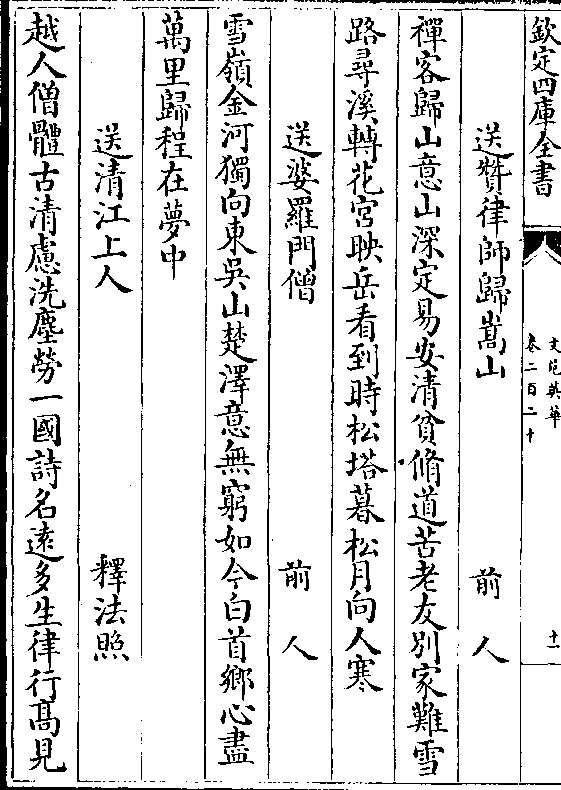 欽定四庫全書
文苑英華
卷二百二十
十一
送贊律師歸嵩山
前人
禪客歸山意山深定易安清貧脩道苦老友別家難雪
路尋溪轉花宮映岳看到時松塔暮松月向人寒
送婆羅門僧
前人
雪嶺金河獨向東吳山楚澤意無窮如今白首鄉心盡
萬里歸程在夢中
送清江上人
釋法照
越人僧體古清慮洗塵勞一國詩名逺多生律行髙見